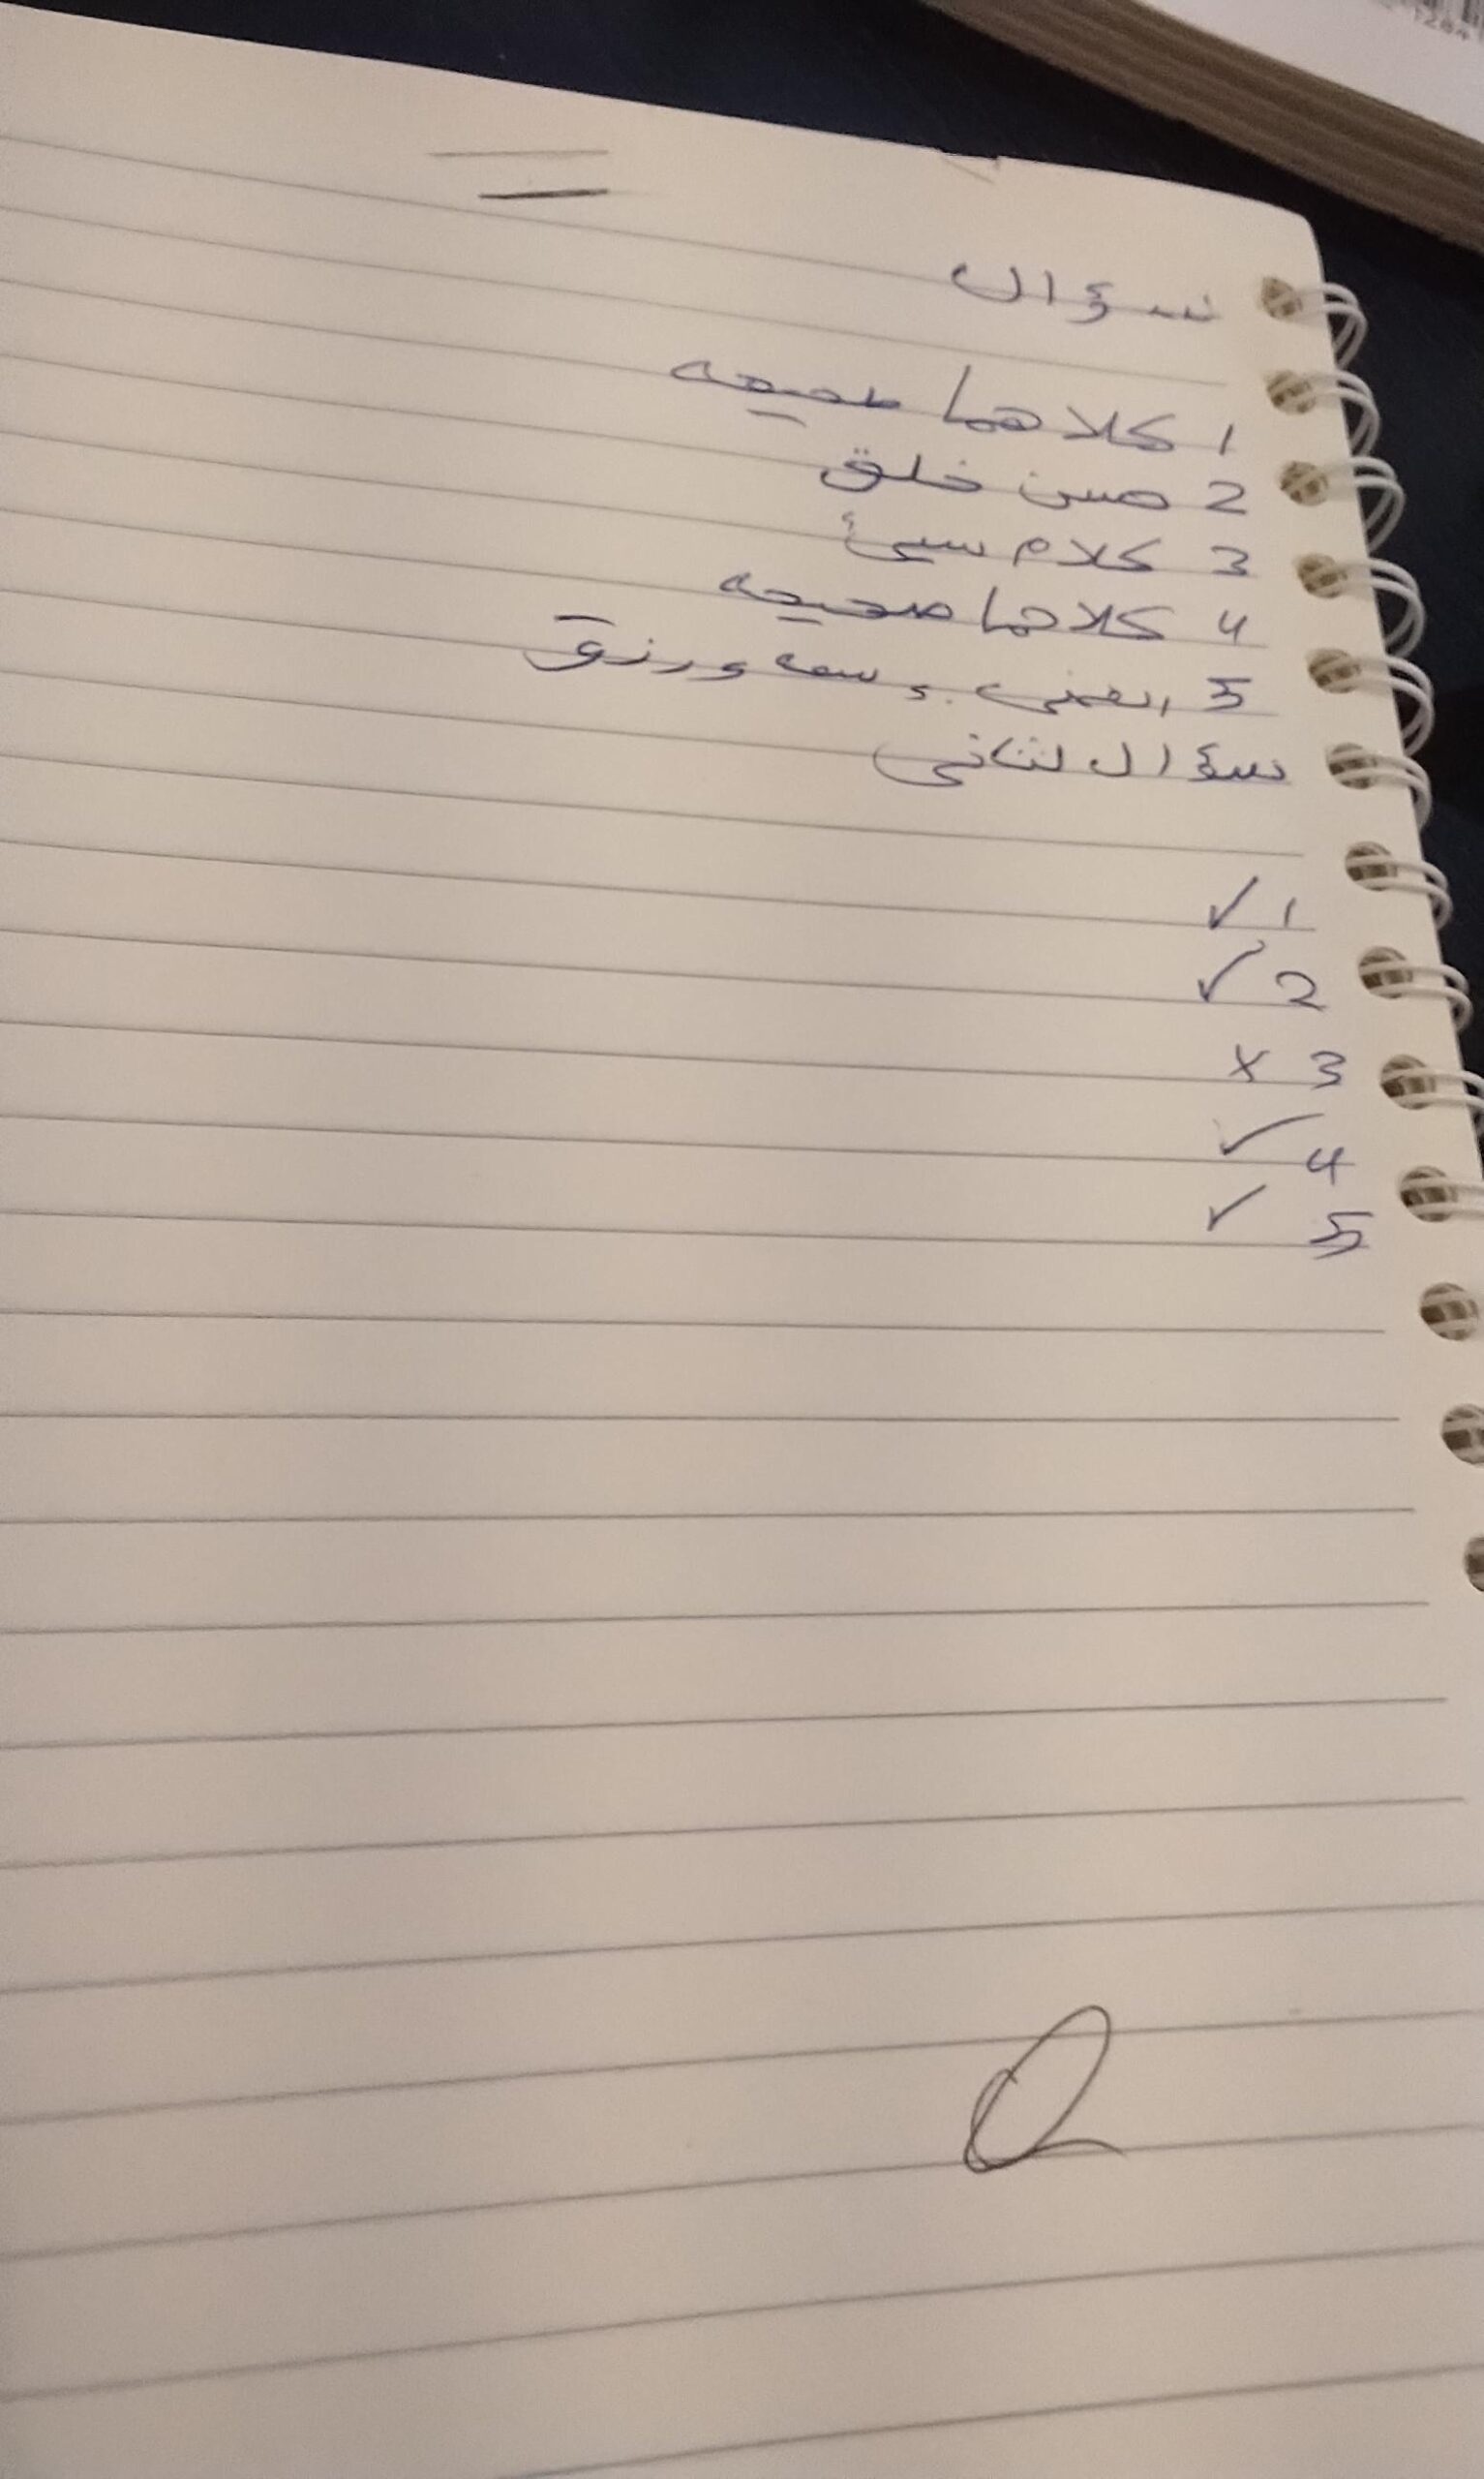 سؤال
1 كلاهما صحيحه
2 حسن خلق
3 كلام سيئ
4 كلاهما صحيحه
5 الغنى و سعه و رزق
سؤال لثاني
1 ✓
2 ✓
3 ×
4 ✓
5 ✓